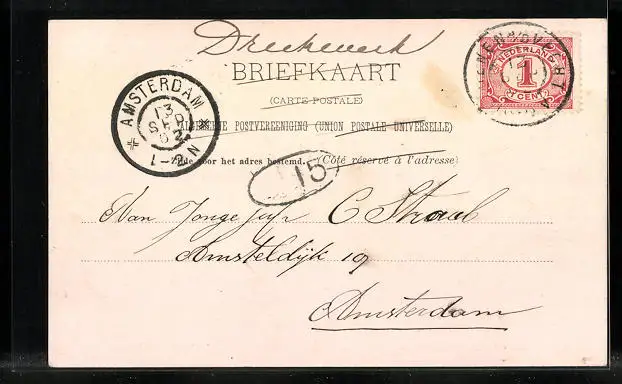 Drukwerk
BRIEFKAART
(CARTE POSTALE)
ALGEMEENE POSTVEREENIGING (UNION POSTALE UNIVERSELLE)
Zijde voor het adres bestemd. (Côté réservé à l'adresse)
NEDERLAND
1
CENT
AMSTERDAM
13
SEP
02
1-2 N
15
Aan Jonge Jufr C Straal
Amsteldijk 19
Amsterdam